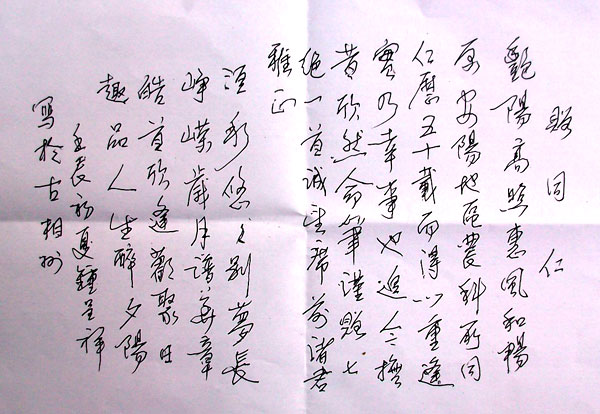 贈同仁
艷陽高照惠風和暢
原安陽地區農科所同
仁歷五十載而得以重逢
實乃幸事也追今撫
昔欣然命筆謹賦七
絕一首誠望席前諸君
雅正
洹彰悠々別夢長
崢嶸歲月譜華章
皓首欣逢歡聚日
趣品人生醉夕陽
壬辰初夏鍾呈祥
寫於古相州